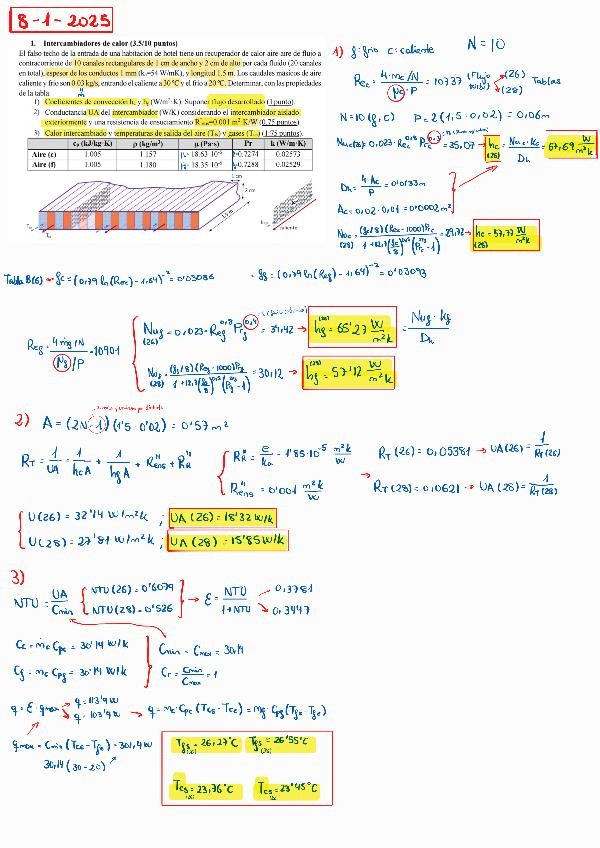 8-1-2025
1. Intercambiadores de calor (3.5/10 puntos)
El falso techo de la entrada de una habitación de hotel tiene un recuperador de calor aire aire de flujo a
contracorriente de 10 canales rectangulares de 1 cm de ancho y 2 cm de alto por cada fluido (20 canales
en total), espesor de los conductos 1 mm (kₐ=54 W/mK), y longitud 1.5 m. Los caudales másicos de aire
caliente y frío son 0.03 kg/s, entrando el caliente a 30 ºC y el frío a 20 ºC. Determinar, con las propiedades
de la tabla:
1) Coeficientes de convección hc y hf (W/m²·K). Suponer flujo desarrollado (1punto).
2) Conductancia UA del intercambiador (W/K) considerando el intercambiador aislado
exteriormente y una resistencia de ensuciamiento R''ens=0.001 m²·K/W (0.75 puntos).
3) Calor intercambiado y temperaturas de salida del aire (Tcs) y gases (Tfs) (1.75 puntos).
cp (kJ/kg·K) ρ (kg/m³) μ (Pa·s) Pr k (W/m·K)
Aire (c) 1.005 1.157 18.63·10⁻⁶ 0.7274 0.02573
Aire (f) 1.005 1.180 18.35·10⁻⁶ 0.7288 0.02529
1 cm
2 cm
1.5 m
caliente
1) f: frío c: caliente N = 10
Re_c = 4·ṁc/N / μc·P = 10737 (Flujo turb.) (26) (28) Tablas
N=10 (f, c) P = 2(1,5·0,02) = 0,06m
Nuc(26) = 0,023·Rec^0,8 Prc^0,3 = 35,07 → hc (26) = Nuc·kc / Dh = 67,69 W/m²k
Dh = 4·Ac / P = 0'0133m
Ac = 0,02·0,01 = 0'0002m²
Nuc (28) = (fc/8)(Rec-1000)Prc / 1+12,7(fc/8)^0,5(Prc^2/3-1) = 29,72 → hc (28) = 57,37 W/m²k
Tabla 8(6) → fc = (0,79 ln(Rec) - 1,64)⁻² = 0'03086 · ff = (0,79 ln(Ref) - 1,64)⁻² = 0'03093
Ref = 4ṁf/N / μf/P = 10901
Nuf (26) = 0,023·Ref^0,8 Prf^0,4 = 34,42 → hf (26) = 65'27 W/m²k = Nuf·kf / Dh
Nuf (28) = (ff/8)(Ref-1000)Prf / 1+12,7(ff/8)^0,5(Prf^2/3-1) = 30,12 → hf (28) = 57'12 W/m²k
2) A = (2N-1)(1'5·0'02) = 0'57 m²
RT = 1/UA = 1/hcA + 1/hfA + R''ens + R''R
R''R = e/ka = 1'85·10⁻⁵ m²k/W
R''ens = 0'001 m²k/W
RT(26) = 0,05381 → UA(26) = 1/RT(26)
→ RT(28) = 0,0621 → UA(28) = 1/RT(28)
U(26) = 32'14 W/m²k ; UA(26) = 18'32 W/k
U(28) = 27'81 W/m²k ; UA(28) = 15'85 W/k
3)
NTU = UA/Cmin NTU(26) = 0'6079 NTU(28) = 0'526 → ε = NTU/1+NTU 0,3781 0,3447
Cc = ṁc Cpc = 30'14 W/k
Cf = ṁc Cpf = 30'14 W/k
Cmin = Cmax = 30,14
Cr = Cmin/Cmax = 1
q = ε·qmax q = 113'9 W q = 103'9 W → q = ṁc·Cpc(Tcs-Tce) = ṁf·Cpf(Tfs-Tfe)
qmax = Cmin(Tce-Tfe) = 301,4 W
30,14 (30-20)
Tfs = 26,27ºC Tfs = 26'55ºC
Tcs = 23,76ºC Tcs = 23'45ºC